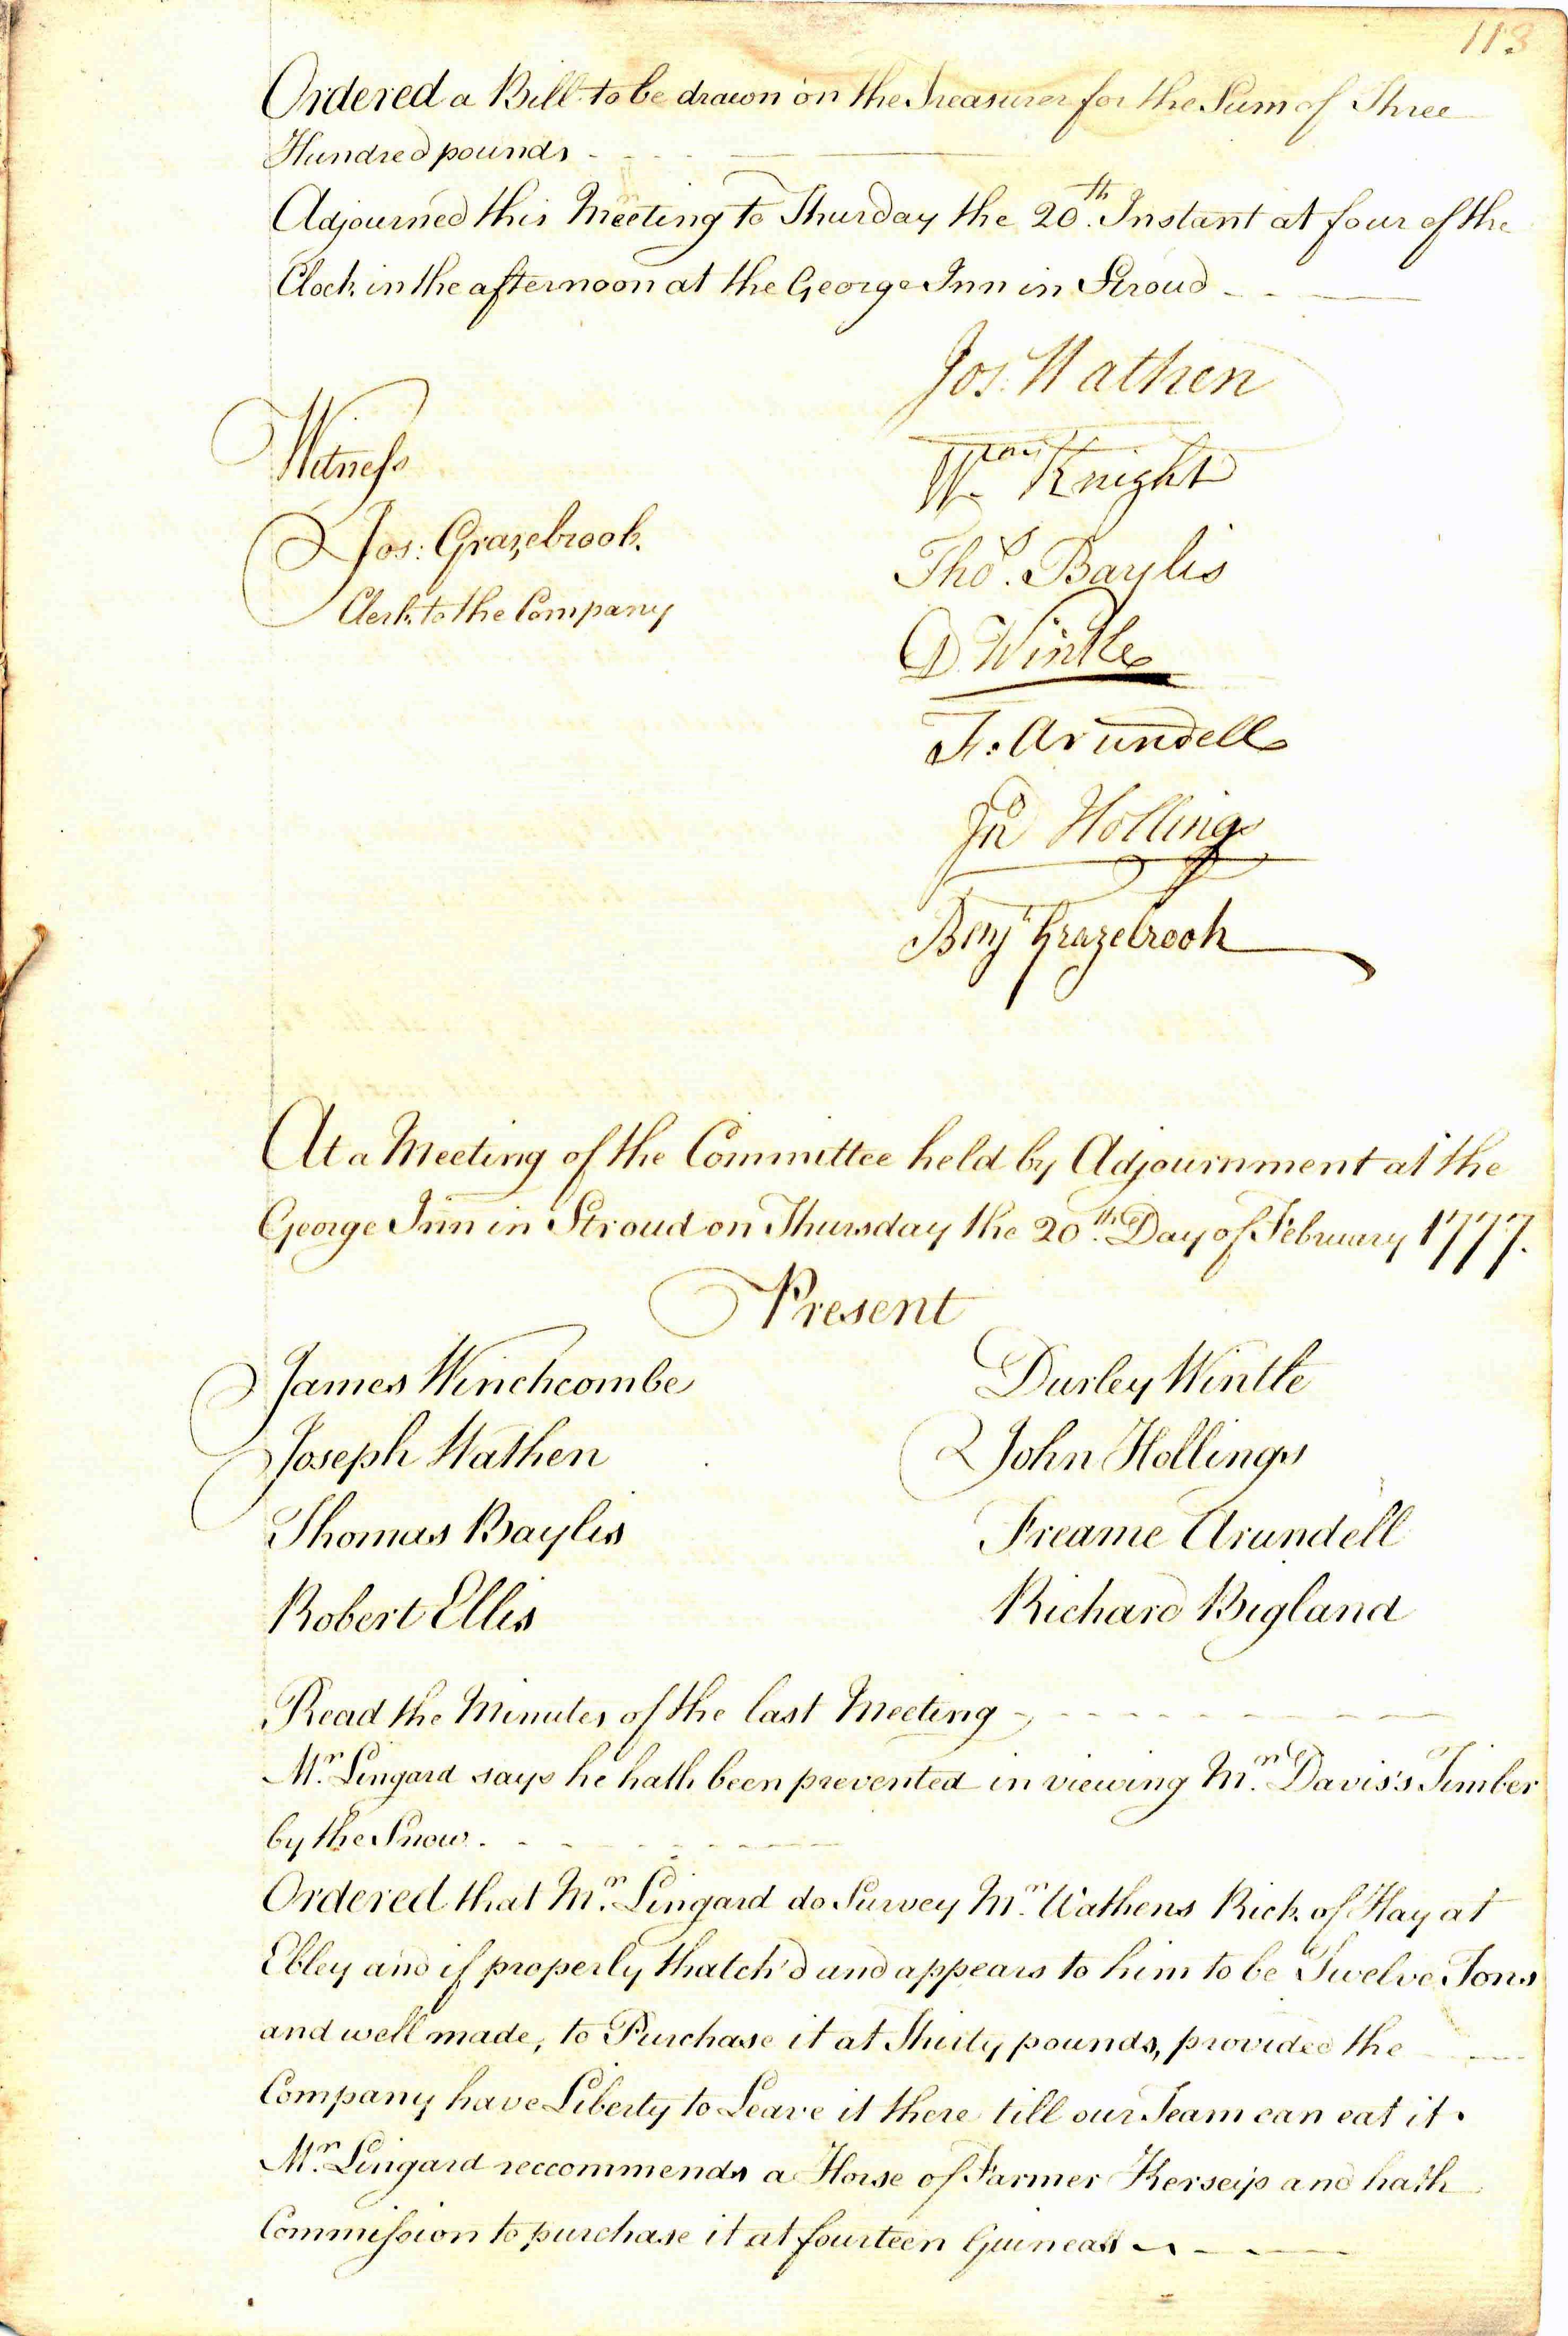 113
Ordered a Bill to be drawn on the Treasurer for the Sum of Three
Hundred pounds
Adjourned this Meeting to Thurday the 20th. Instant at four of the
Clock in the afternoon at the George Inn in Stroud
Jos. Wathen
Witness
Wm Knight
Jos: Grazebrook.
Thos. Baylis
Clerk to the Company
D Wintle
F: Arundell
Jno Hollings
Benj Grazebrook
At a Meeting of the Committee held by Adjournment at the
George Inn in Stroud on Thursday the 20th. Day of February 1777.
Present
James Winchcombe Durley Wintle
Joseph Wathen John Hollings
Thomas Baylis Freame Arundell
Robert Ellis Richard Bigland
Read the Minutes of the last Meeting
Mr. Lingard says he hath been prevented in viewing Mr. Davis's Timber
by the Snow.
Ordered that Mr. Lingard do Survey Mr. Wathens Rick of Hay at
Ebley and if properly thatch'd and appears to him to be Twelve Tons
and well made, to Purchase it at Thirty pounds, provided the
Company have Liberty to Leave it there till our Team can eat it.
Mr. Lingard reccommends a Horse of Farmer Kerseip and hath
Commission to purchase it at fourteen Guineas